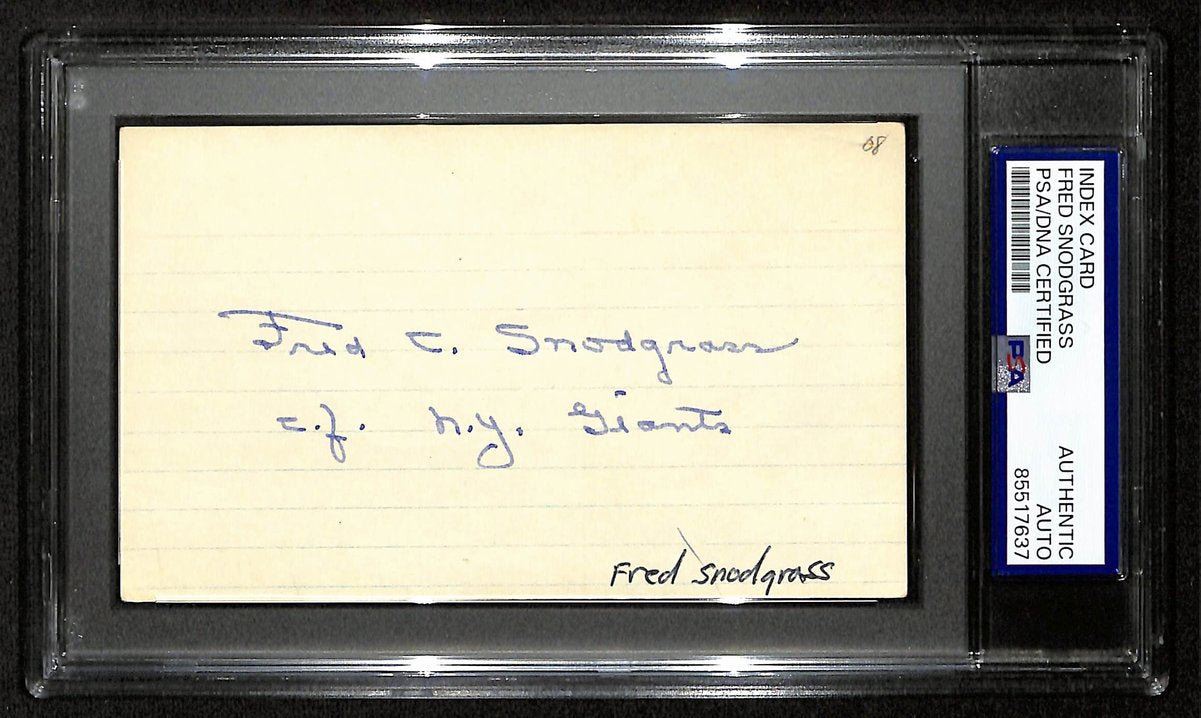 08
Fred C. Snodgrass
c.f. N.Y. Giants
Fred Snodgrass
INDEX CARD
FRED SNODGRASS
PSA/DNA CERTIFIED
PSA
AUTHENTIC
AUTO
85517637